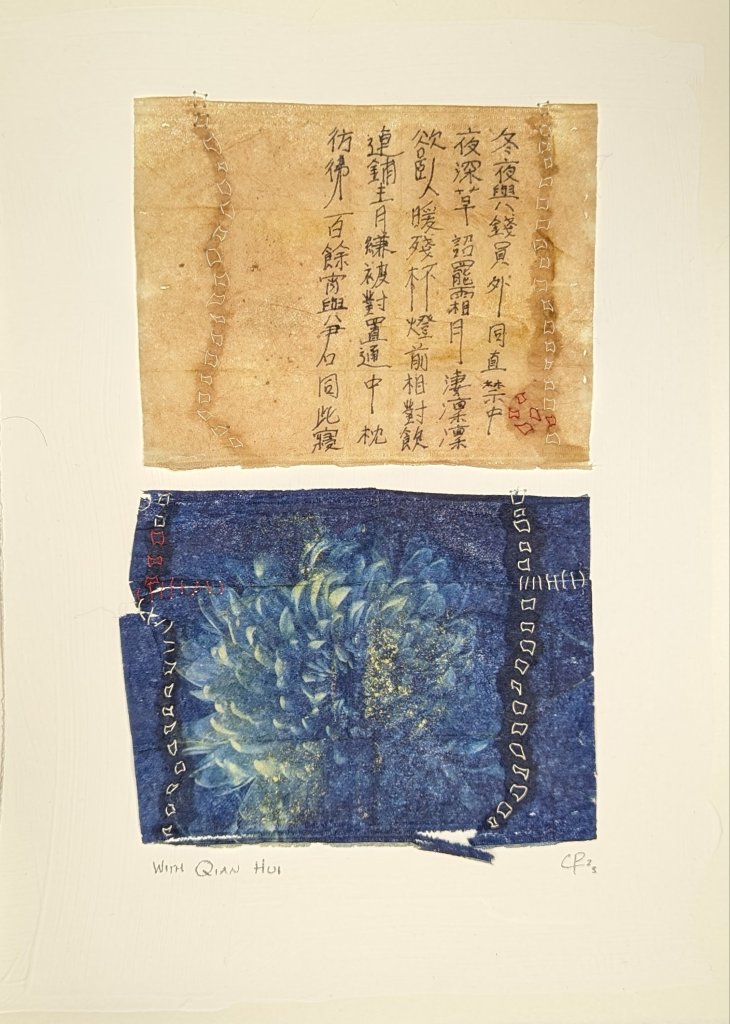 冬夜與錢員外同直禁中
夜深草詔罷霜月淒凜凜
欲臥暖殘杯燈前相對飲
連鋪青縑被對置通中枕
彷彿百餘宵與君同此寢
WITH QIAN HUI